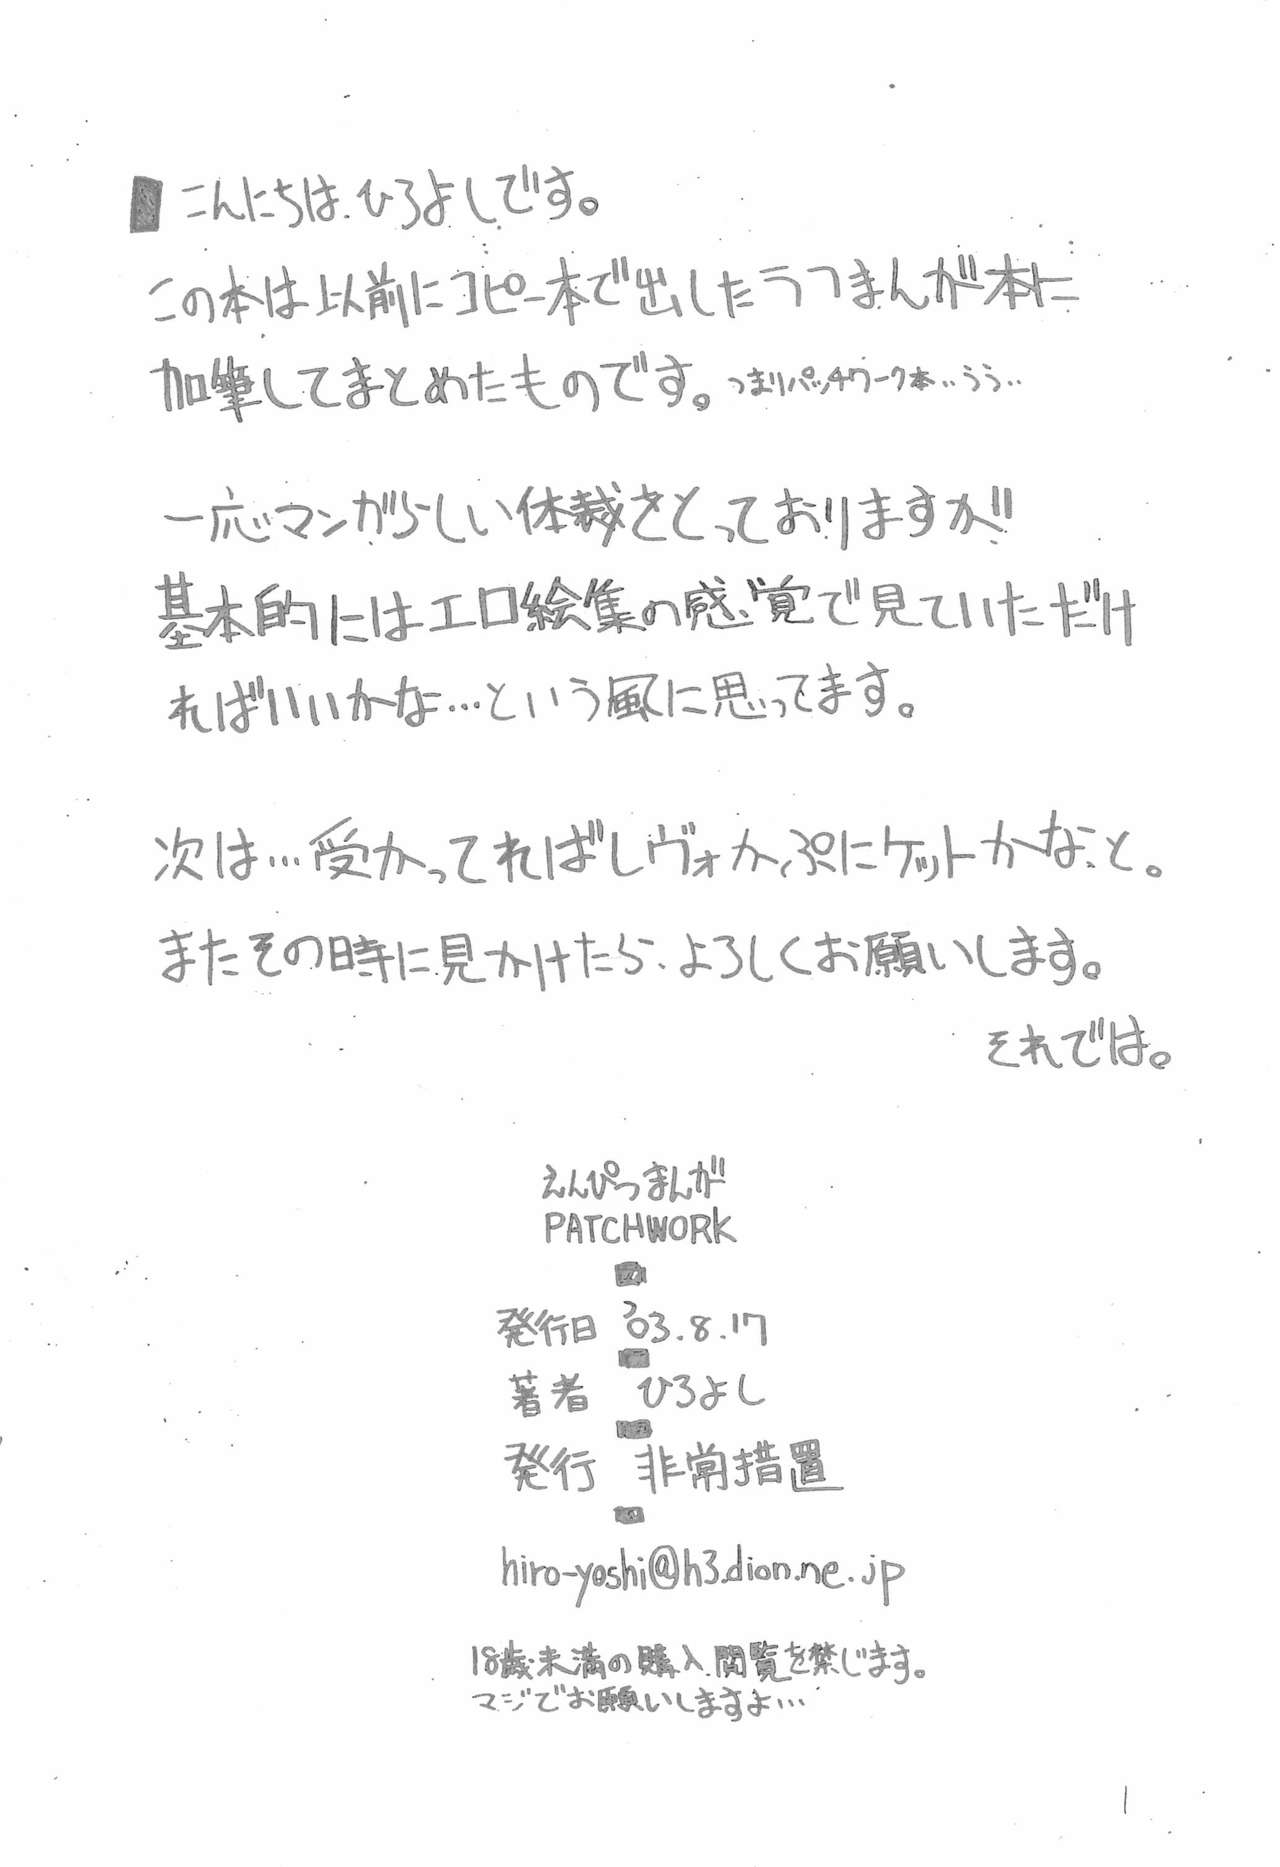 こんにちは、ひろよしです。
この本は以前にコピー本で出したラフまんが本に
加筆してまとめたものです。つまりパッチワーク本‥うう‥
一応マンガらしい体裁をとっておりますが
基本的にはエロ絵集の感覚で見ていただけ
ればいいかな…という風に思ってます。
次は…受かってればレヴォか、ぷにケットかなと。
またその時に見かけたら、よろしくお願いします。
それでは。
えんぴつまんが
PATCHWORK
発行日 '03.8.17
著者 ひろよし
発行 非常措置
hiro-yoshi@h3.dion.ne.jp
18歳未満の購入、閲覧を禁じます。
マジでお願いしますよ…
1